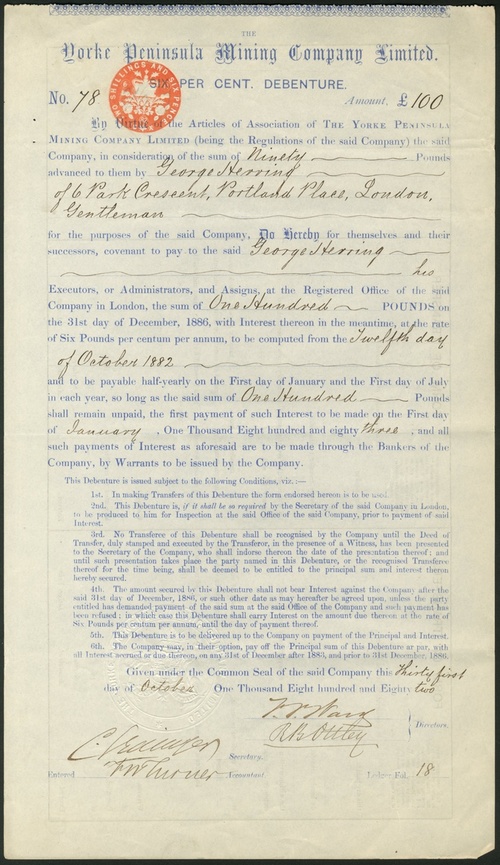 THE
Yorke Peninsula Mining Company Limited.
SIX PER CENT. DEBENTURE.
No. 78 Amount, £100
By Virtue of the Articles of Association of THE YORKE PENINSULA
MINING COMPANY LIMITED (being the Regulations of the said Company) the said
Company, in consideration of the sum of Ninety Pounds
advanced to them by George Herring
of 6 Park Crescent, Portland Place, London,
Gentleman
for the purposes of the said Company, Do Hereby for themselves and their
successors, covenant to pay to the said George Herring
his
Executors, or Administrators, and Assigns, at the Registered Office of the said
Company in London, the sum of One Hundred POUNDS on
the 31st day of December, 1886, with Interest thereon in the meantime, at the rate
of Six Pounds per centum per annum, to be computed from the Twelfth day
of October 1882
and to be payable half-yearly on the First day of January and the First day of July
in each year, so long as the said sum of One Hundred Pounds
shall remain unpaid, the first payment of such Interest to be made on the First day
of January, One Thousand Eight hundred and eighty three, and all
such payments of Interest as aforesaid are to be made through the Bankers of the
Company, by Warrants to be issued by the Company.
This Debenture is issued subject to the following Conditions, viz.:—
1st. In making Transfers of this Debenture the form endorsed hereon is to be used.
2nd. This Debenture is, if it shall be so required by the Secretary of the said Company in London,
to be produced to him for Inspection at the said Office of the said Company, prior to payment of said
Interest.
3rd. No Transferee of this Debenture shall be recognised by the Company until the Deed of
Transfer, duly stamped and executed by the Transferor, in the presence of a Witness, has been presented
to the Secretary of the Company, who shall indorse thereon the date of the presentation thereof; and
until such presentation takes place the party named in this Debenture, or the recognised Transferee
thereof for the time being, shall be deemed to be entitled to the principal sum and interest theron
hereby secured.
4th. The amount secured by this Debenture shall not bear Interest against the Company after the
said 31st day of December, 1886, or such other date as may hereafter be agreed upon, unless the party
entitled has demanded payment of the said sum at the said Office of the Company and such payment has
been refused; in which case this Debenture shall carry Interest on the amount due thereon at the rate of
Six Pounds per centum per annum, until the day of payment thereof.
5th. This Debenture is to be delivered up to the Company on payment of the Principal and Interest.
6th. The Company may, in their option, pay off the Principal Sum of this Debenture at par, with
all Interest accrued or due thereon, on any 31st of December after 1883, and prior to 31st December, 1886.
Given under the Common Seal of the said Company this Thirty first
day of October One Thousand Eight hundred and Eighty two
Directors.
R B Ottley
Secretary.
Entered F W Turner Accountant. Ledger Fol. 18